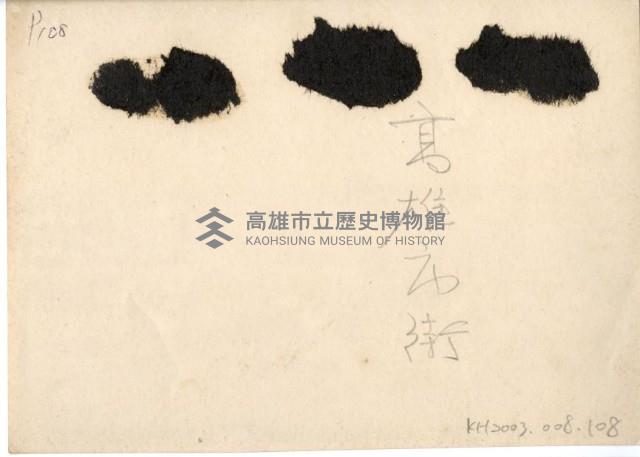 P108
高雄市立歷史博物館
KAOHSIUNG MUSEUM OF HISTORY
高雄市街
KH2003.008.108